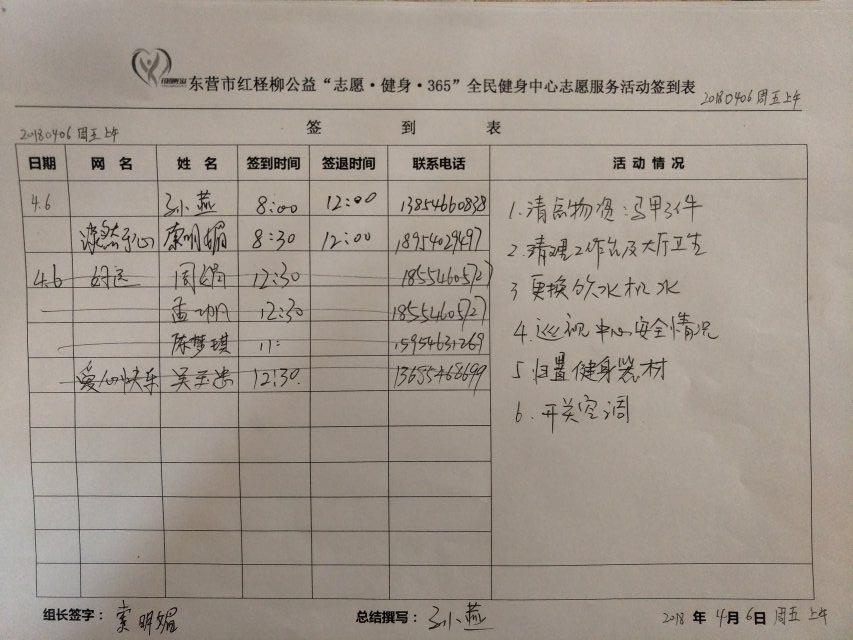 东营市红柽柳公益“志愿·健身·365”全民健身中心志愿服务活动签到表
20180406 周五上午
20180406 周五上午
签 到 表
日期 网 名 姓 名 签到时间 签退时间 联系电话 活 动 情 况
4.6 孙小燕 8:00 12:00 13854660838
索明媚 8:30 12:00 18954029497
4.6 好运 周娟 12:30 18554605727
孟 12:30 18554605727
陈梦琪 11: 15954631269
爱心快乐 吴玉 12:30. 13655468699
1.清点物资:马甲3件
2.清理工作台及大厅卫生
3 更换饮水机水
4.巡视中心安全情况
5 归置健身器材
6.开关空调
组长签字: 索明媚 总结撰写: 孙小燕 2018 年 4月6日 周五 上午